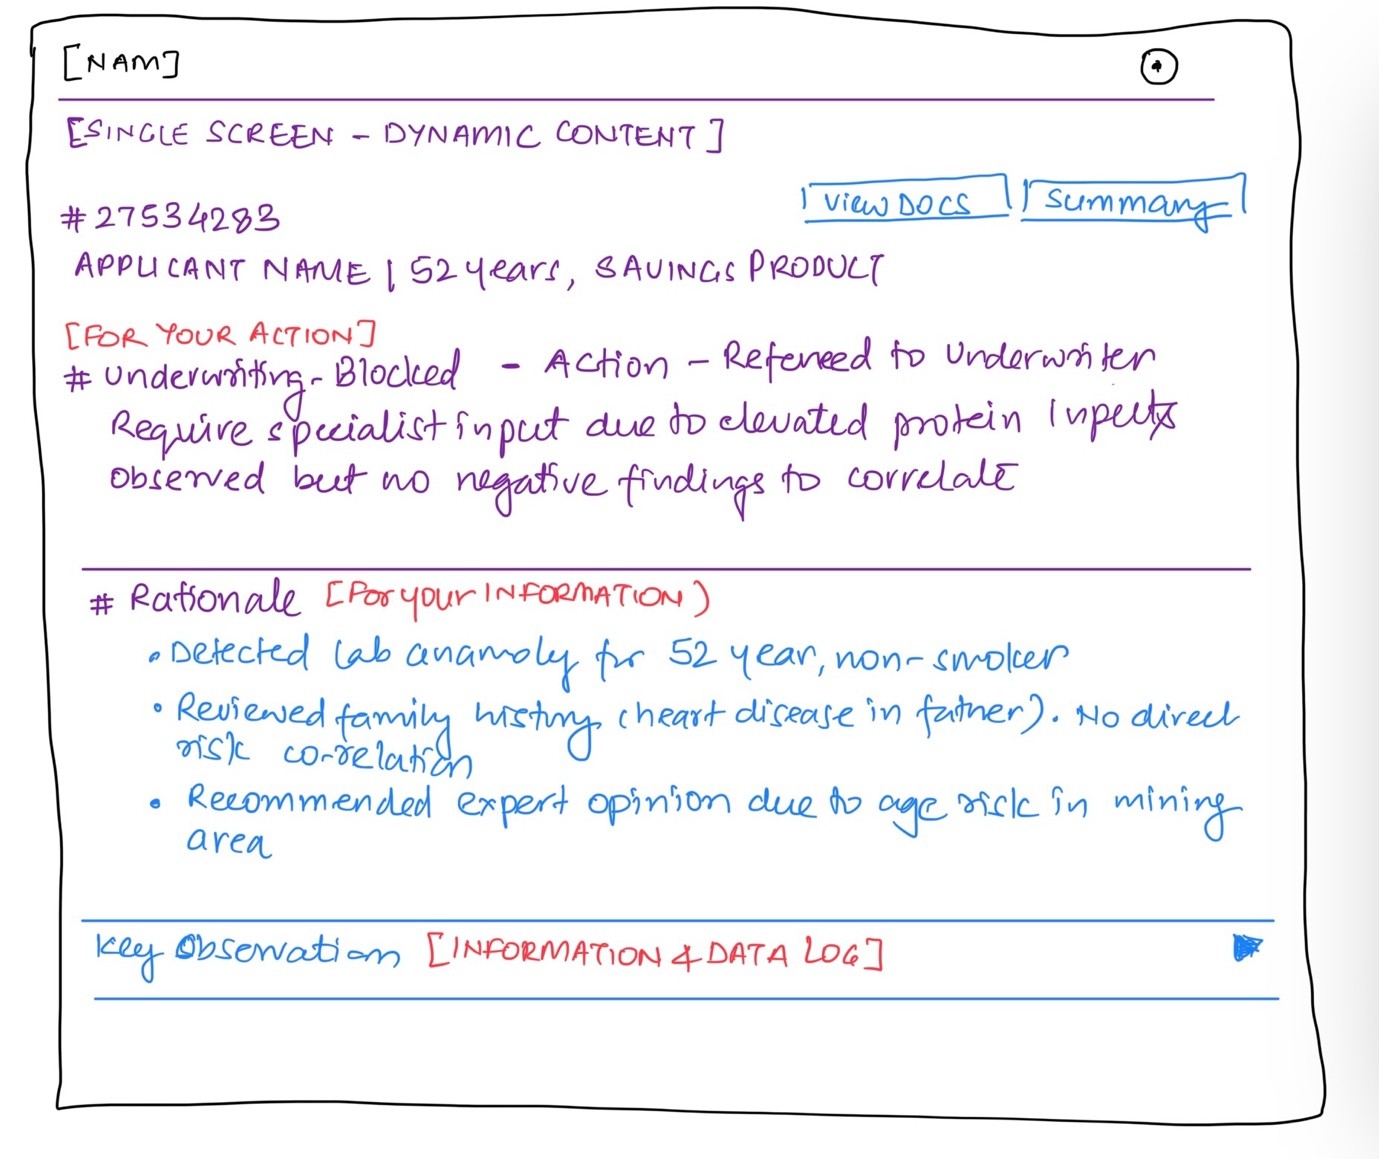 [NAM]
[SINGLE SCREEN - DYNAMIC CONTENT]
VIEW DOCS
Summary
#27534283
APPLICANT NAME | 52 years, SAVINGS PRODUCT
[FOR YOUR ACTION]
# Underwriting - Blocked - Action - Refereed to Underwriter
Require specialist input due to elevated protein
Observed but no negative findings to correlate
# Rationale [For your INFORMATION)
• Detected lab anamoly for 52 year, non-smoker
• Reviewed family history (heart disease in father). No direct
risk co-relation
• Recommended expert opinion due to age risk in mining
area
Key Observation [INFORMATION & DATA LOG]